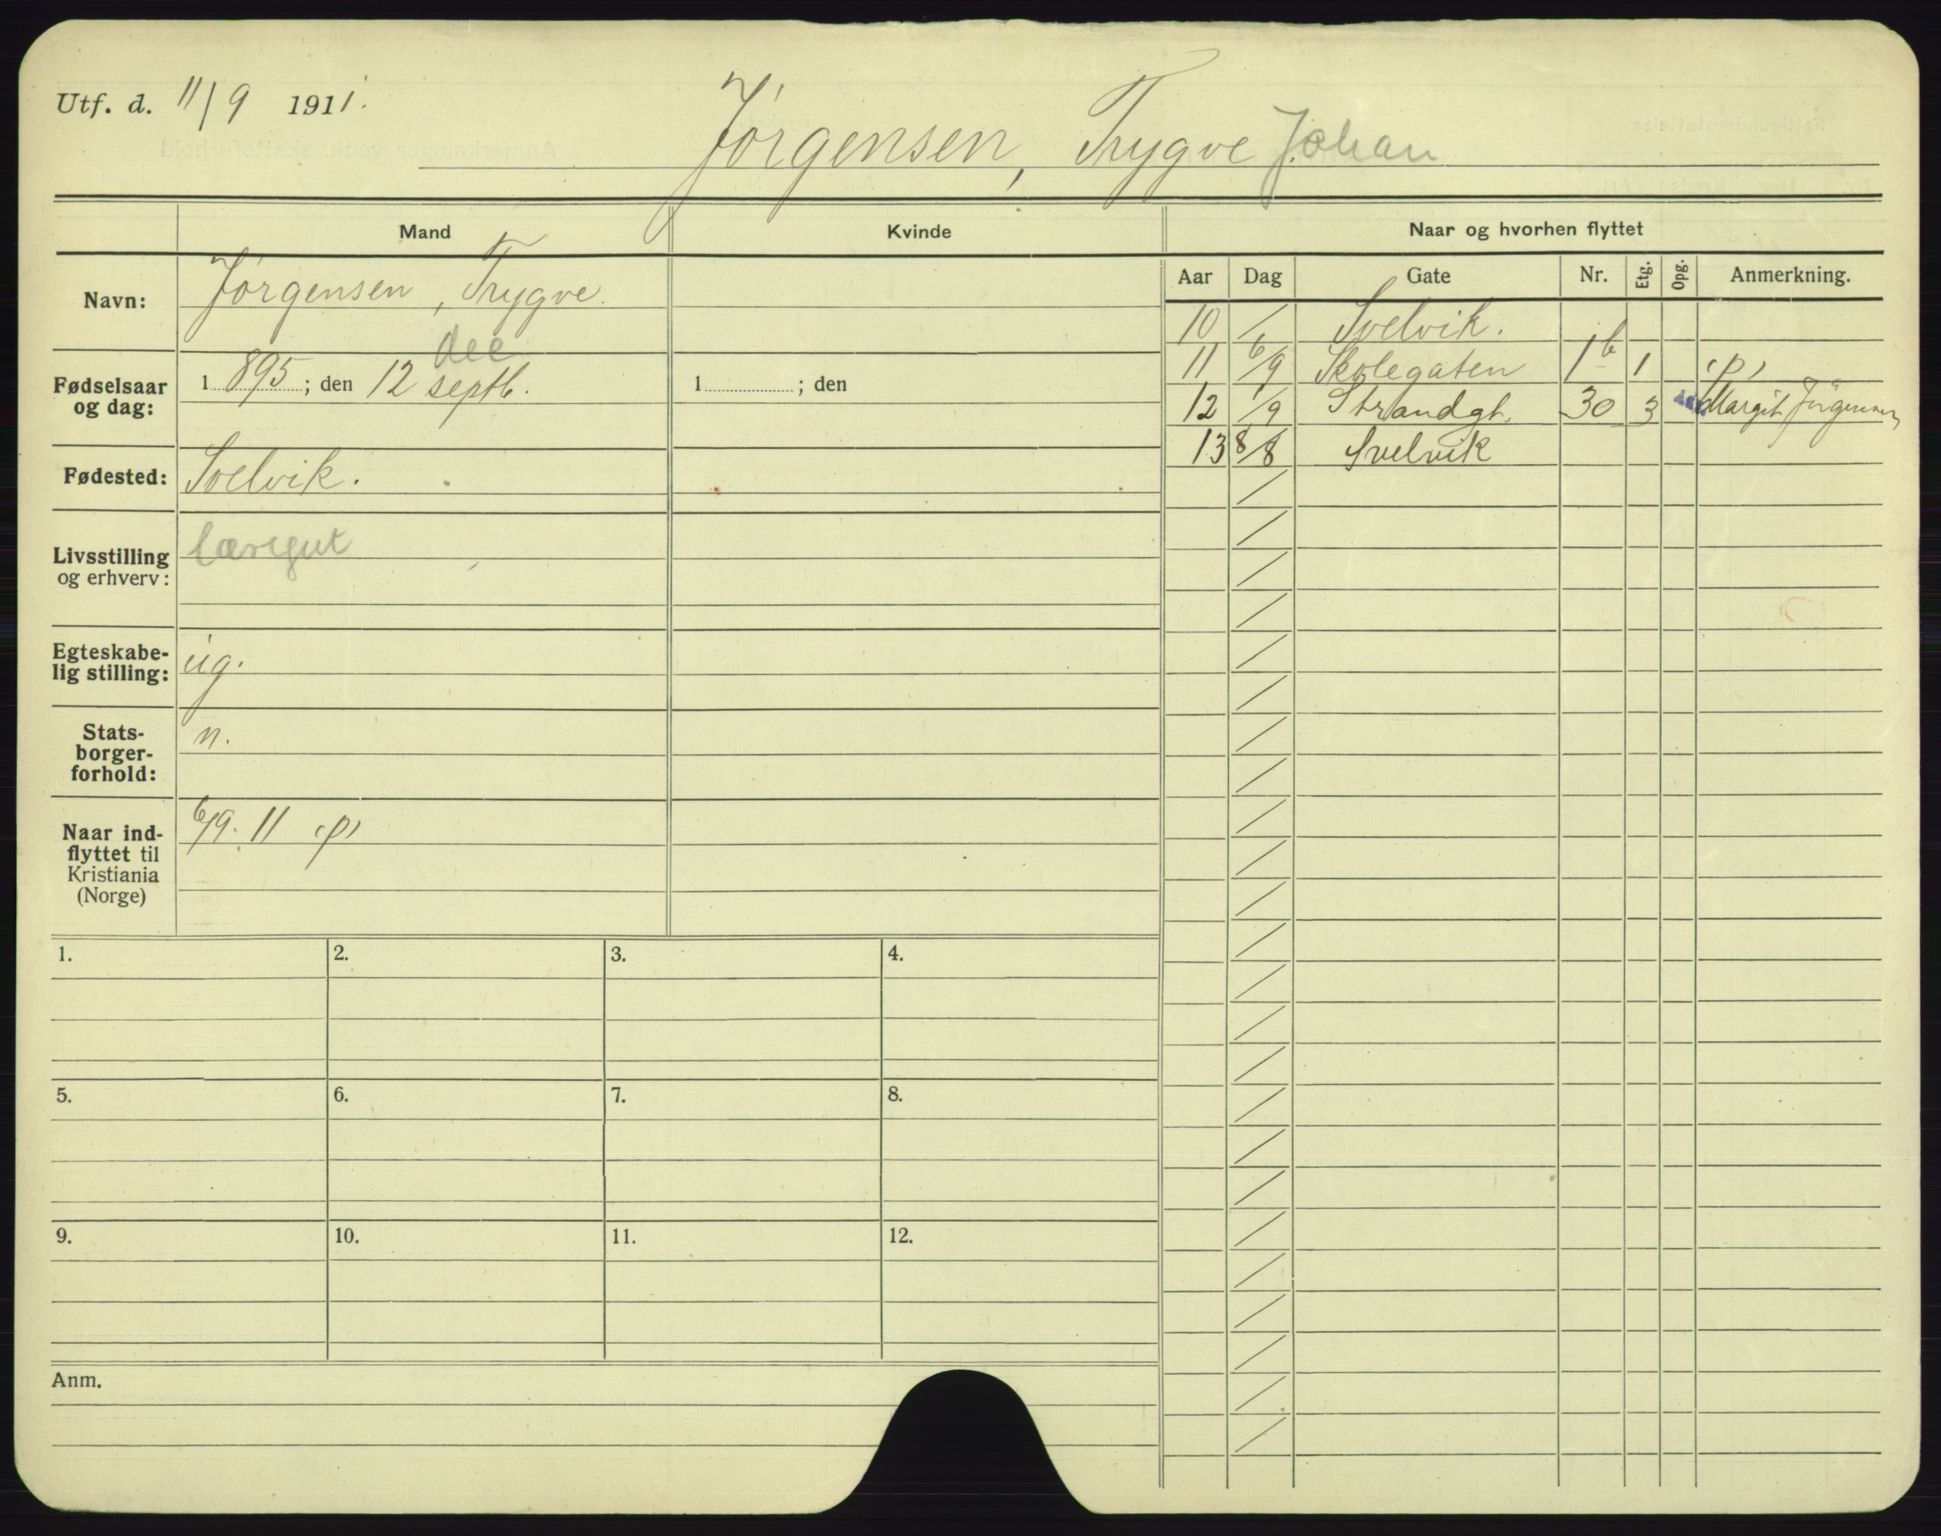 Utf. d. 11/9 1911.
Jörgensen, Trygve Johan
Mand
Kvinde
Naar og hvorhen flyttet
Navn:
Jörgensen, Trygve.
Fødselsaar og dag:
1895; den 12 septb.
dec
1 ; den
Fødested:
Svelvik.
Livsstilling og erhverv:
læregut
Egteskabe-
lig stilling:
ug.
Stats-
borger-
forhold:
n.
Naar ind-
flyttet til
Kristiania
(Norge)
6/9. 11 (p)
Aar Dag Gate Nr. Etg. Opg. Anmerkning.
10 / Svelvik.
11 6/9 Skolegaten 1b 1 (p)
12 /9 Strandgt. 30 3 Margit Jörgensen
13 8/8 Svelvik
1. 2. 3. 4.
5. 6. 7. 8.
9. 10. 11. 12.
Anm.